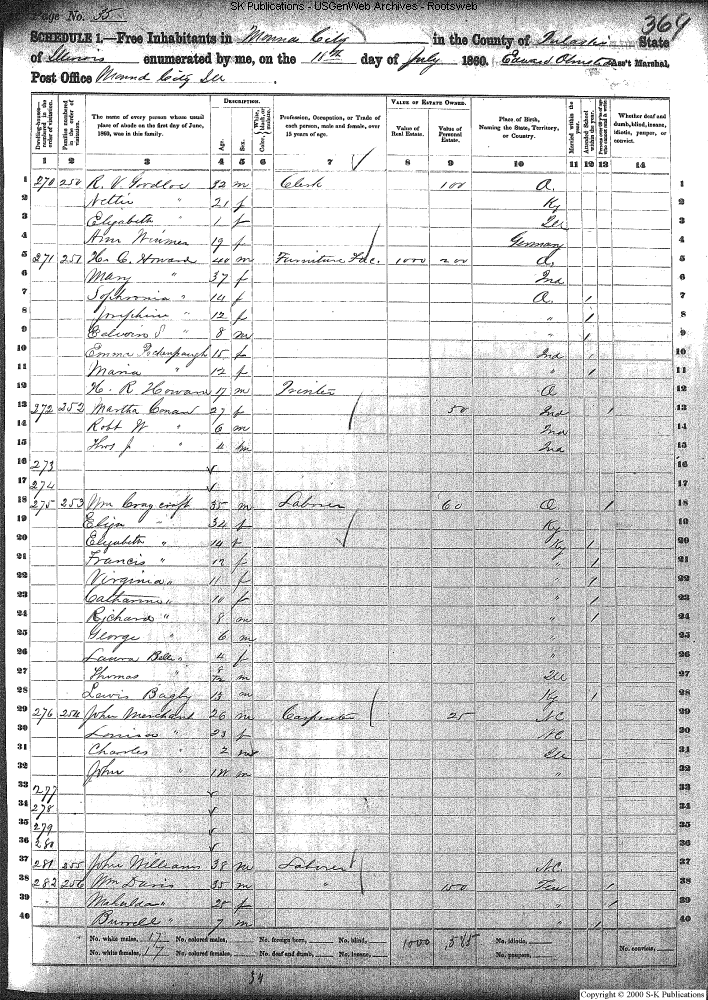 SK Publications - USGenWeb Archives - Rootsweb
Page No. 35
369
SCHEDULE 1.—Free Inhabitants in Mound City in the County of Pulaski State
of Illinois enumerated by me, on the 11th day of July 1860. Edward Olmsted Ass't Marshal,
Post Office Mound City Ill
Dwelling-houses— numbered in the order of visitation.
Families numbered in the order of visitation.
The name of every person whose usual place of abode on the first day of June, 1860, was in this family.
DESCRIPTION.
Age.
Sex.
Color, White, black, or mulatto.
Profession, Occupation, or Trade of each person, male and female, over 15 years of age.
VALUE OF ESTATE OWNED.
Value of Real Estate.
Value of Personal Estate.
Place of Birth, Naming the State, Territory, or Country.
Married within the year.
Attended School within the year.
Whether deaf and dumb, blind, insane, idiotic, pauper, or convict.
1 2 3 4 5 6 7 8 9 10 11 12 13 14
1 270 250 R. V. Goodloe 32 m Clerk 100 O. 1
2 Nettie " 21 f Ky 2
3 Elizabeth " 1 f Ill 3
4 19 f Germany 4
5 271 251 H. C. Howard 40 m Furniture Fac. 1000 200 O. 5
6 Mary " 37 f Ind 6
7 Sophronia " 14 f O. / 7
8 Josephine " 12 f " / 8
9 Calvin S " 8 m " / 9
10 Emma 15 f Ind / 10
11 Maria " 12 f " / 11
12 H. R. Howard 17 m Printer O 12
13 272 252 Martha Conant 27 f 50 Ind / 13
14 Robt W " 6 m Ind 14
15 Thos J " 4 m Ind 15
16 273 16
17 274 17
18 275 253 Wm Craycroft 35 m Laborer 60 O / 18
19 Eliza " 34 f Ky 19
20 Elizabeth " 14 f Ky / 20
21 Francis " 12 f " / 21
22 Virginia " 11 f " / 22
23 Catharine " 10 f " / 23
24 Richard " 8 m " / 24
25 George " 6 m " 25
26 Laura Belle " 4 f " 26
27 Thomas " m Ill 27
28 Lewis Bagby 13 m Ky / 28
29 276 254 John Merchant 26 m Carpenter 25 NC 29
30 Louisa " 23 f NC 30
31 Charles " 2 m Ill 31
32 John " m " 32
33 277 33
34 278 34
35 279 35
36 280 36
37 281 255 John Williams 38 m Laborer N.C. 37
38 282 256 Wm Davis 35 m " 150 Ten / 38
39 Mahulda " 25 f " / 39
40 Burrell " 7 m " / 40
No. white males, 17 No. colored males, No. foreign born, No. blind, 1000 585 No. idiotic, No. convicts,
No. white females, 17 No. colored females, No. deaf and dumb, No. insane, No. paupers,
34
Copyright © 2000 S-K Publications